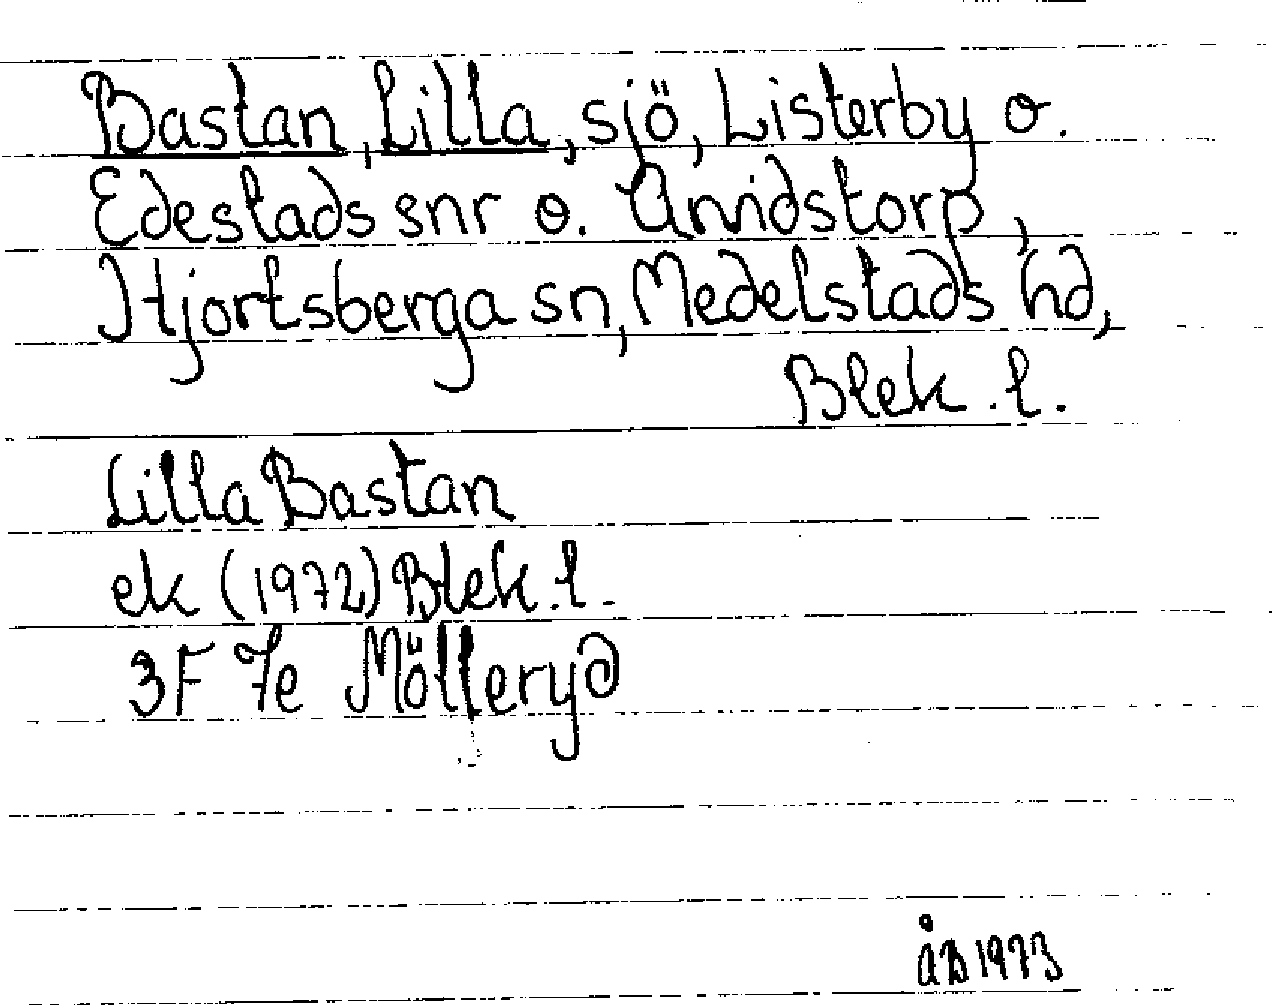 Bastan, Lilla, sjö, Listerby o.
Edestads snr o. Arvidstorp,
Hjortsberga sn, Medelstads hd,
Blek. l.
Lilla Bastan
ek (1972) Blek. l.
3F 7e Mölleryd
åB 1973